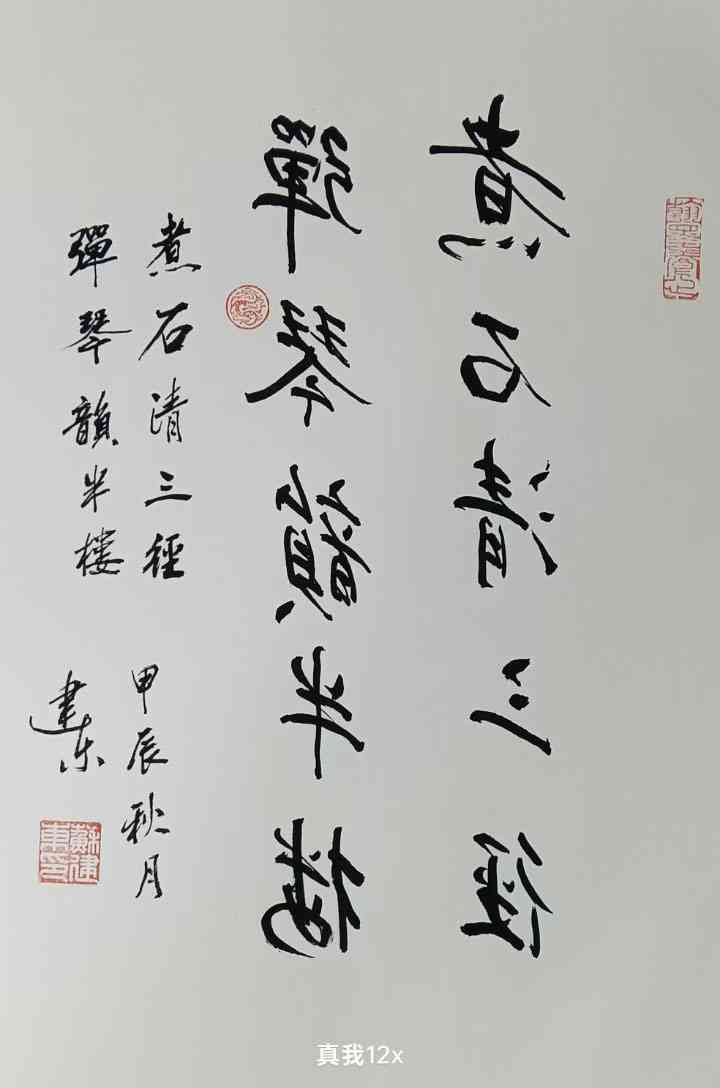 煮石清三徑
彈琴韻半樓
煮石清三徑
彈琴韻半樓
甲辰秋月
建东
蘇建東印
真我12x